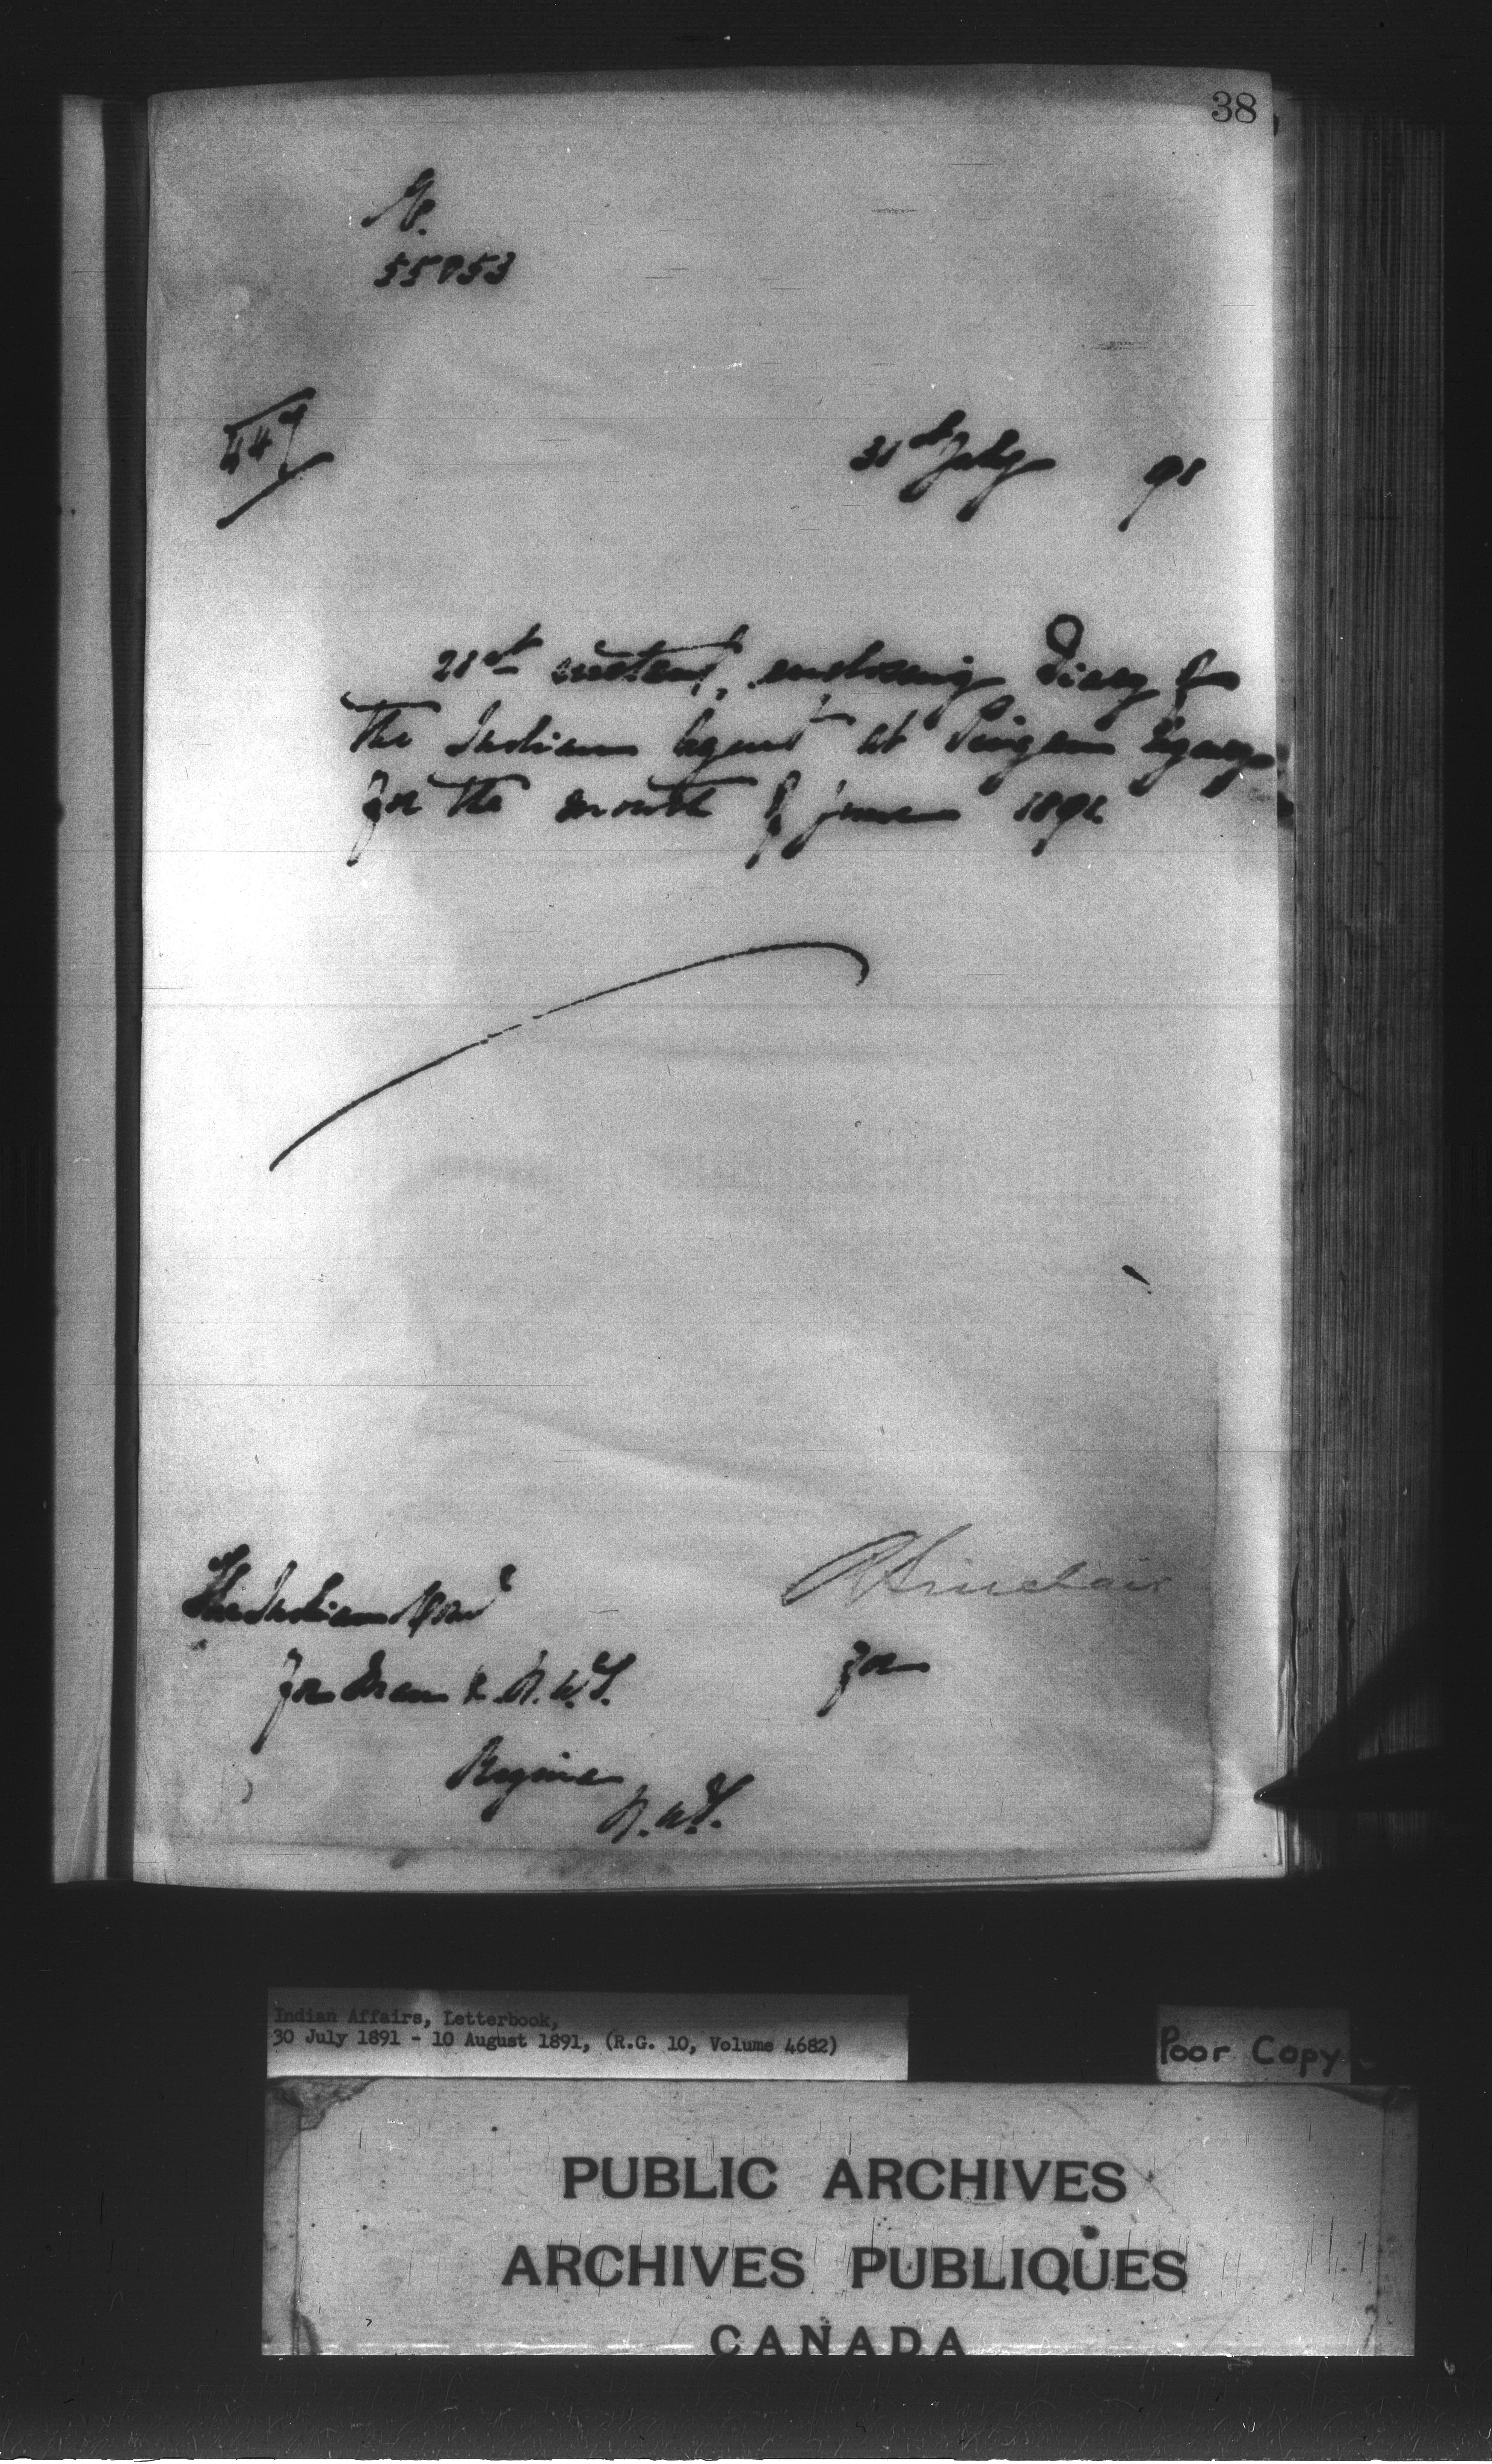 38
No.
55853
447
31st July 91
21st instant, enclosing Diary of
the Indian Agent at Peigan Agency
for the month of June 1891
The Indian Comr
for Man & N.W.T.
Regina
N.W.T.
R Sinclair
for
Indian Affairs, Letterbook,
30 July 1891 - 10 August 1891, (R.G. 10, Volume 4682)
Poor Copy
PUBLIC ARCHIVES
ARCHIVES PUBLIQUES
CANADA